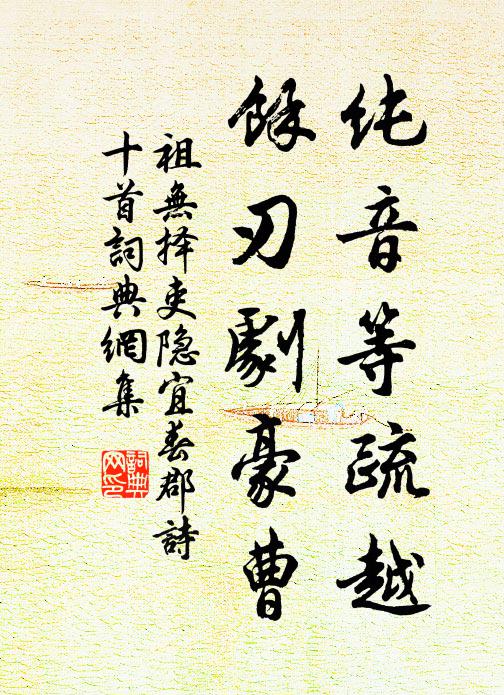 纯音等疏越
餘刃劇豪曹
祖無择吏隐宜春郡詩
十首詞典網集
詞典網印